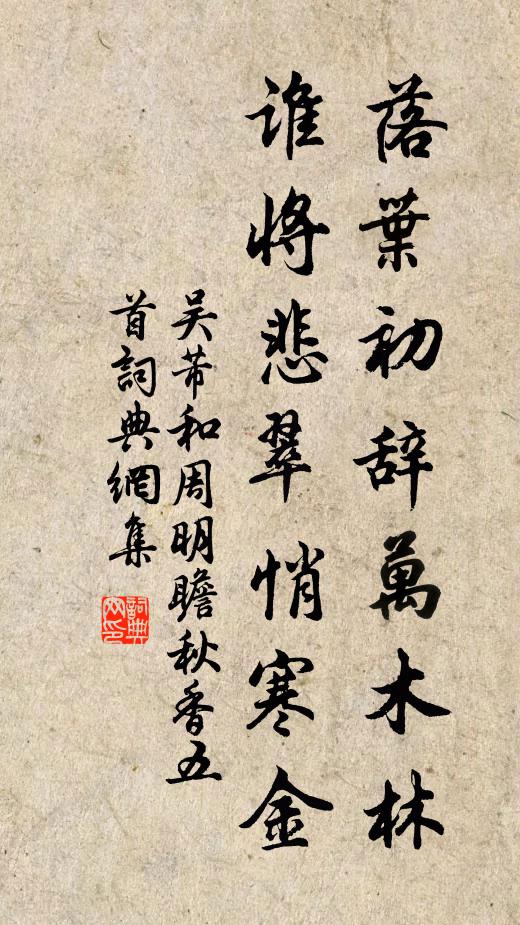 落葉初辞萬木林
誰将悲翠悄寒金
吴芾和周明瞻秋香五
首詞典網集
詞典
网印